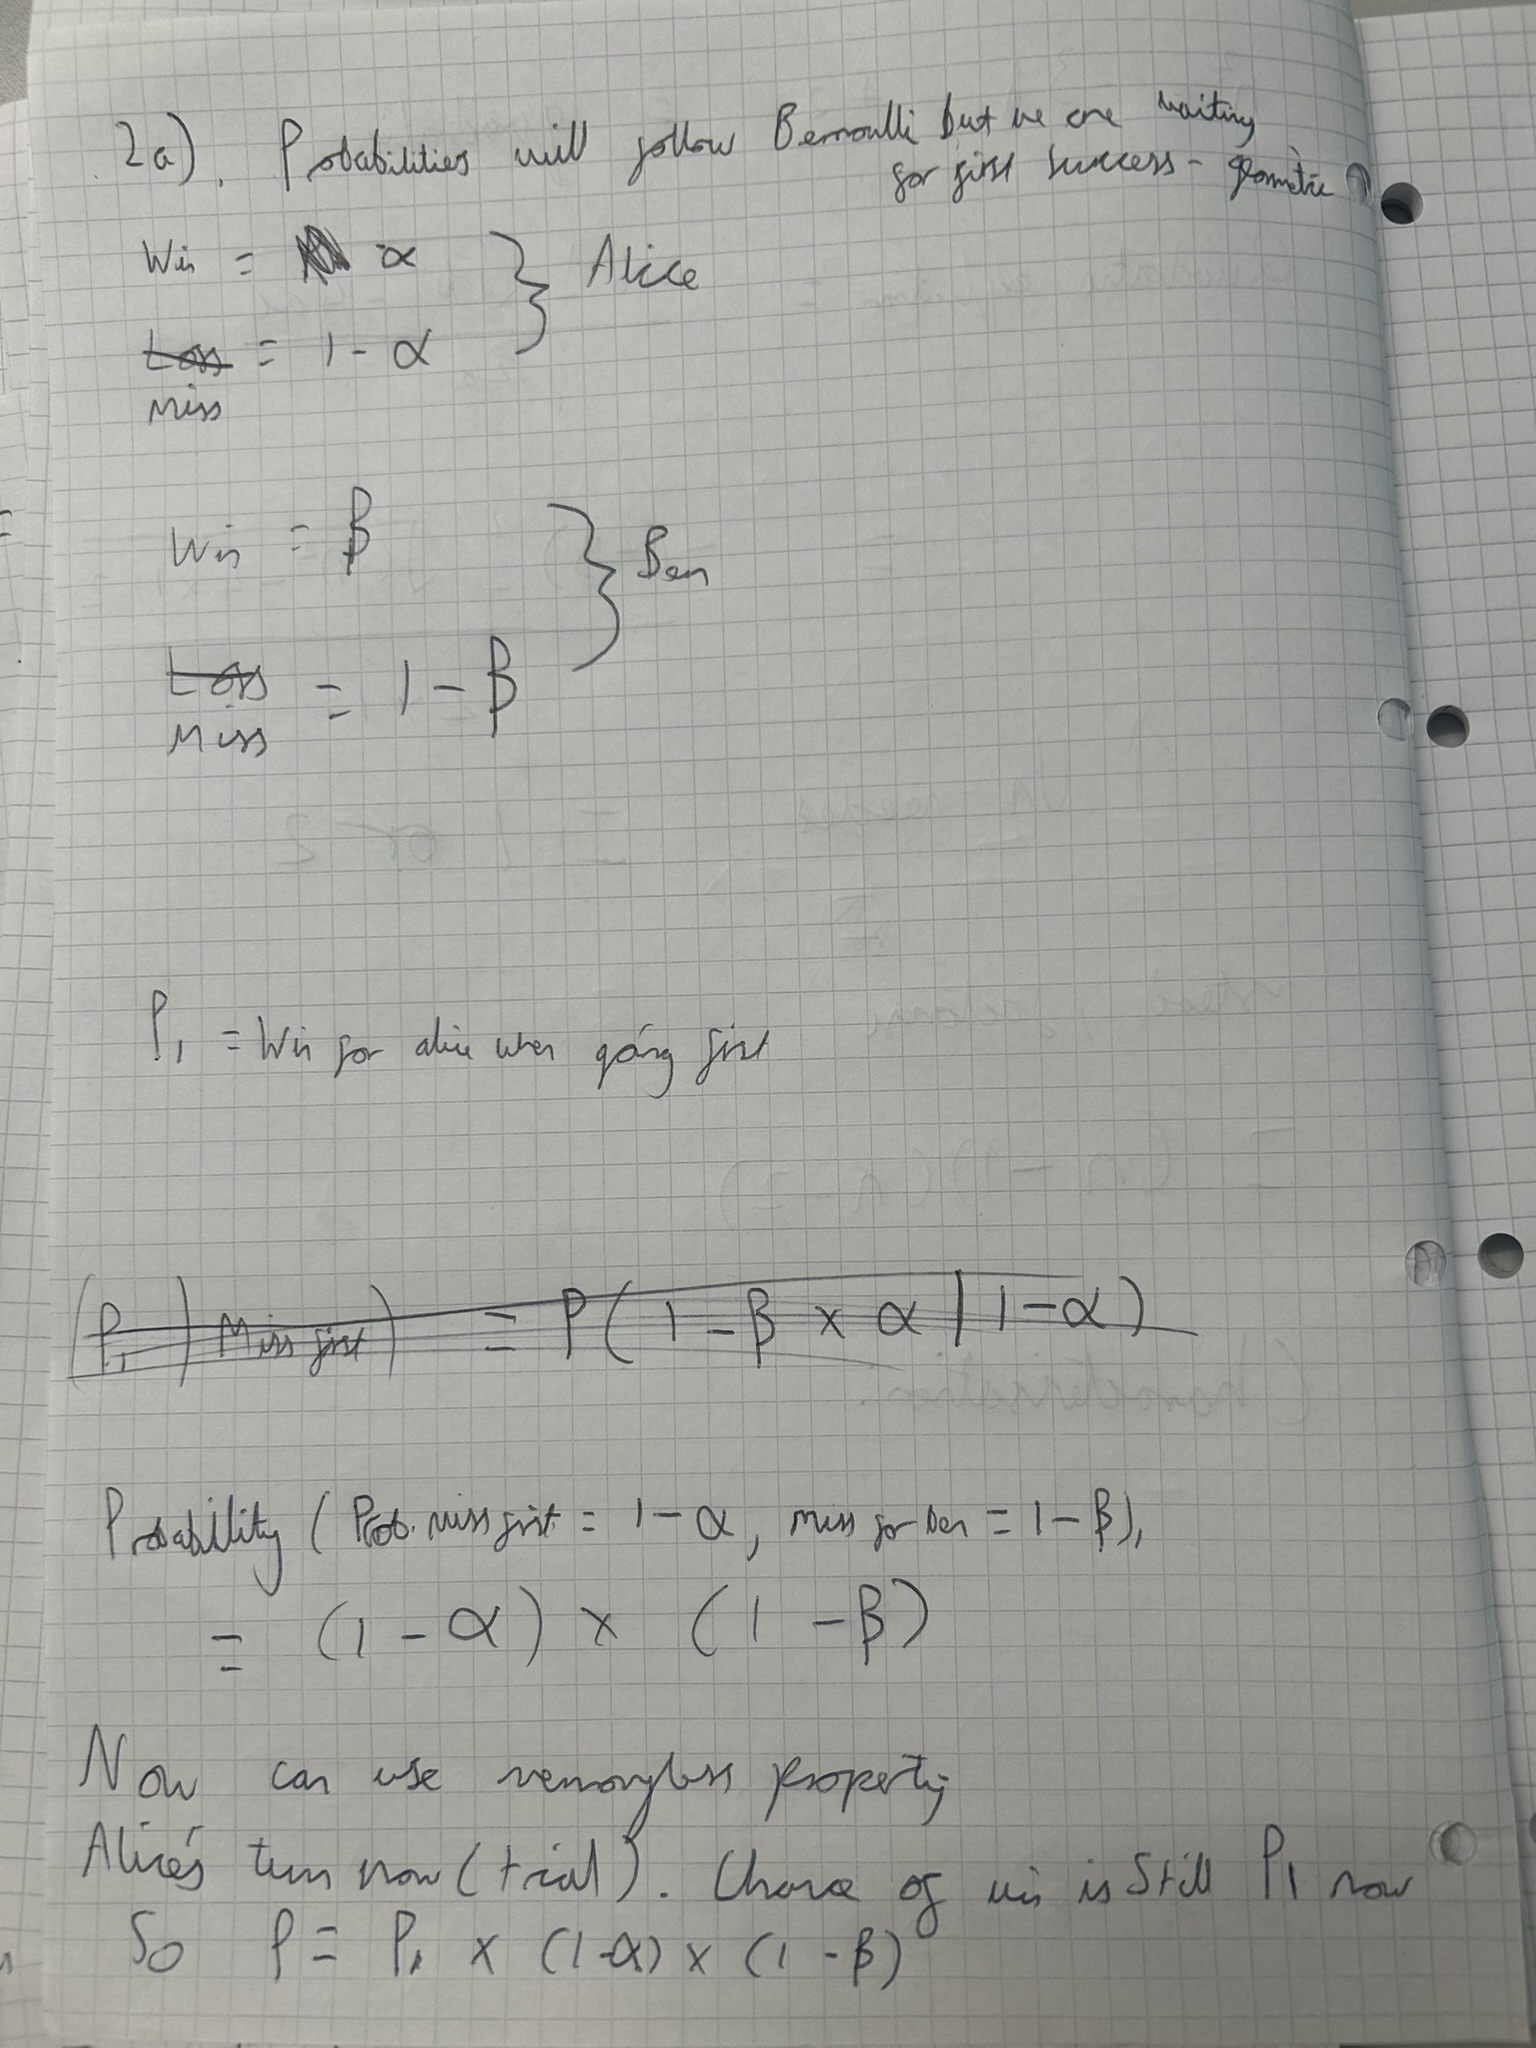 2a). Probabilities will follow Bernoulli but we are waiting
for first success - geometric
Win = α } Alice
Loss = 1 - α
Miss
Win = β } Ben
Loss = 1 - β
Miss
P₁ = Win for alice when going first
(P₁ | Miss first) = P(1 - β × α | 1 - α)
Probability (Prob. miss first = 1 - α, miss for Ben = 1 - β),
= (1 - α) × (1 - β)
Now can use memoryless property
Alice's turn now (trial). Chance of win is still P₁ now
So P = P₁ × (1-α) × (1 - β)